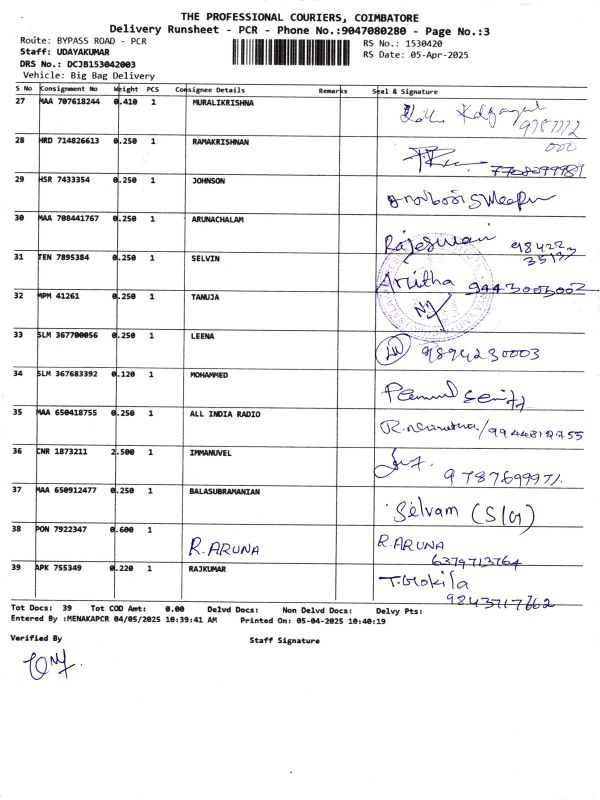 THE PROFESSIONAL COURIERS, COIMBATORE
Delivery Runsheet - PCR - Phone No.:9047080280 - Page No.:3
Route: BYPASS ROAD - PCR
RS No.: 1530420
Staff: UDAYAKUMAR
RS Date: 05-Apr-2025
DRS No.: DCJB153042003
Vehicle: Big Bag Delivery
S No Consignment No Weight PCS Consignee Details Remarks Seal & Signature
27 MAA 707618244 0.410 1 MURALIKRISHNA
28 HRD 714826613 0.250 1 RAMAKRISHNAN
29 HSR 7433354 0.250 1 JOHNSON
30 MAA 708441767 0.250 1 ARUNACHALAM Rajeswari
31 TEN 7895384 0.250 1 SELVIN Anitha 9443005002
32 MPM 41261 0.250 1 TANUJA
33 SLM 367700056 0.250 1 LEENA 9894230003
34 SLM 367683392 0.120 1 MOHAMMED
35 MAA 650418755 0.250 1 ALL INDIA RADIO
36 CNR 1873211 2.500 1 IMMANUVEL
37 MAA 650912477 0.250 1 BALASUBRAMANIAN Selvam (S/G)
38 PON 7922347 0.600 1 R. ARUNA R. ARUNA
6379713764
39 APK 755349 0.220 1 RAJKUMAR T. Gokila
9843717662
Tot Docs: 39 Tot COD Amt: 0.00 Delvd Docs: Non Delvd Docs: Delvy Pts:
Entered By :MENAKAPCR 04/05/2025 10:39:41 AM Printed On: 05-04-2025 10:40:19
Verified By Staff Signature